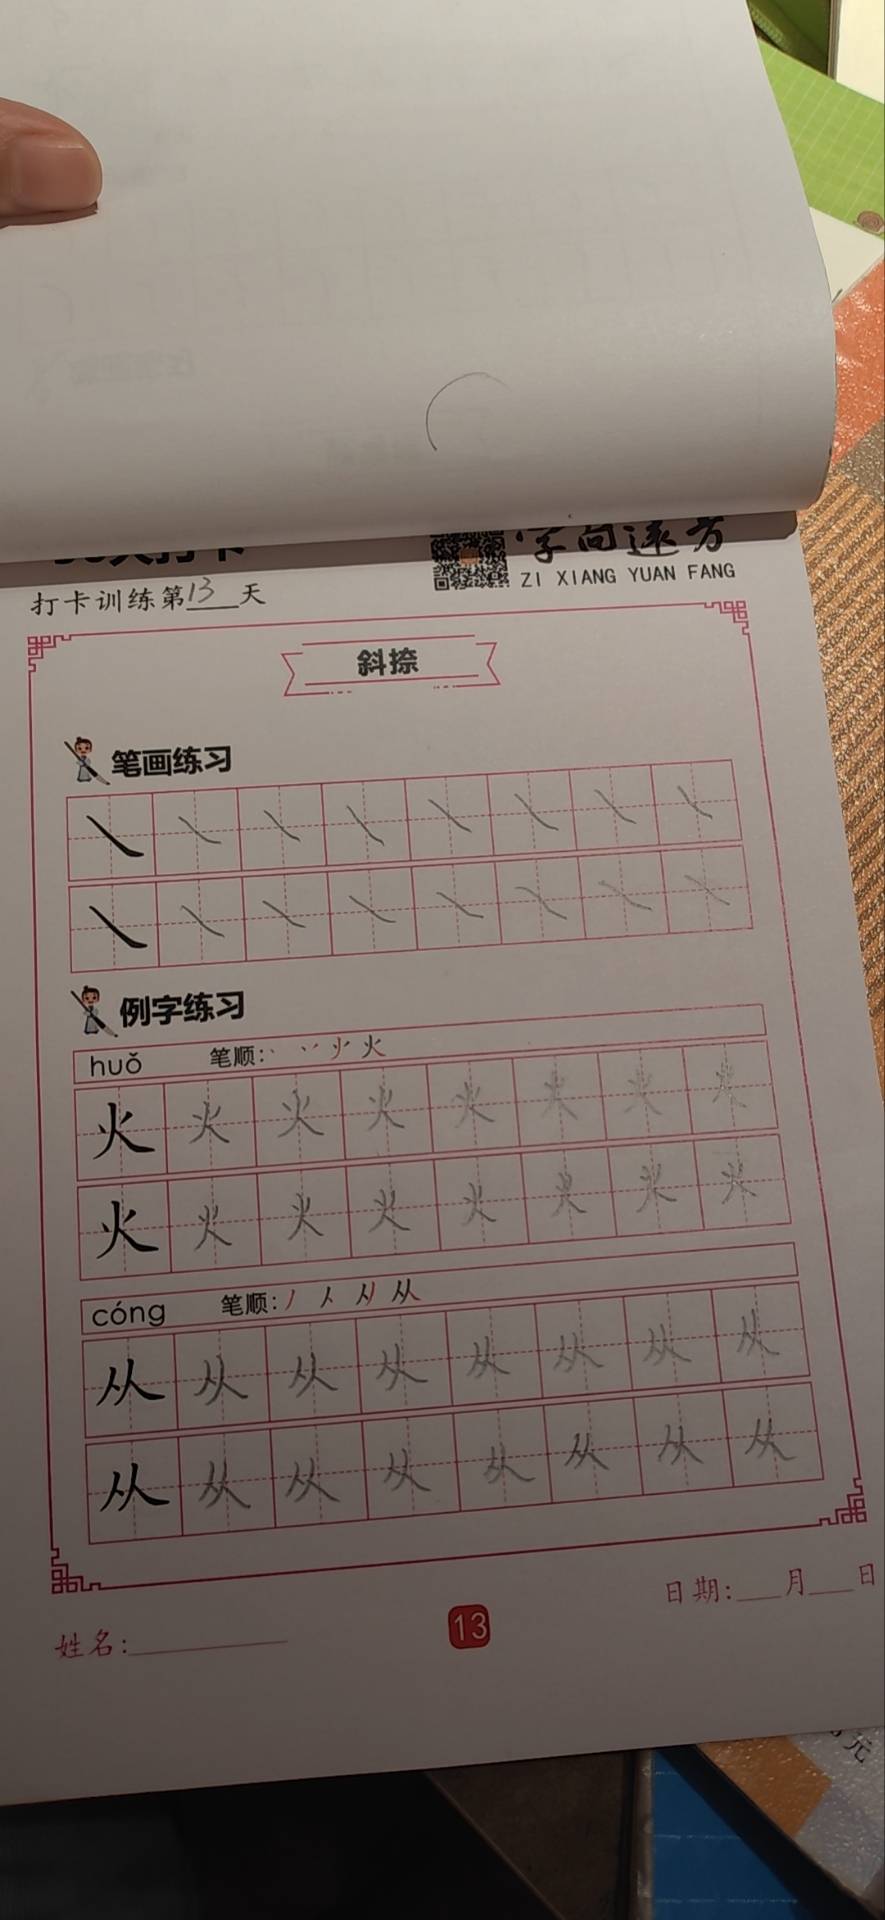 字向远方
ZI XIANG YUAN FANG
打卡训练第13天
斜捺
笔画练习
例字练习
huǒ 笔顺: 火
火 火 火 火 火 火 火 火
火 火 火 火 火 火 火 火
cóng 笔顺: 丿 人 从
从 从 从 从 从 从 从 从
从 从 从 从 从 从 从 从
日期:___月___日
姓名:
13
元